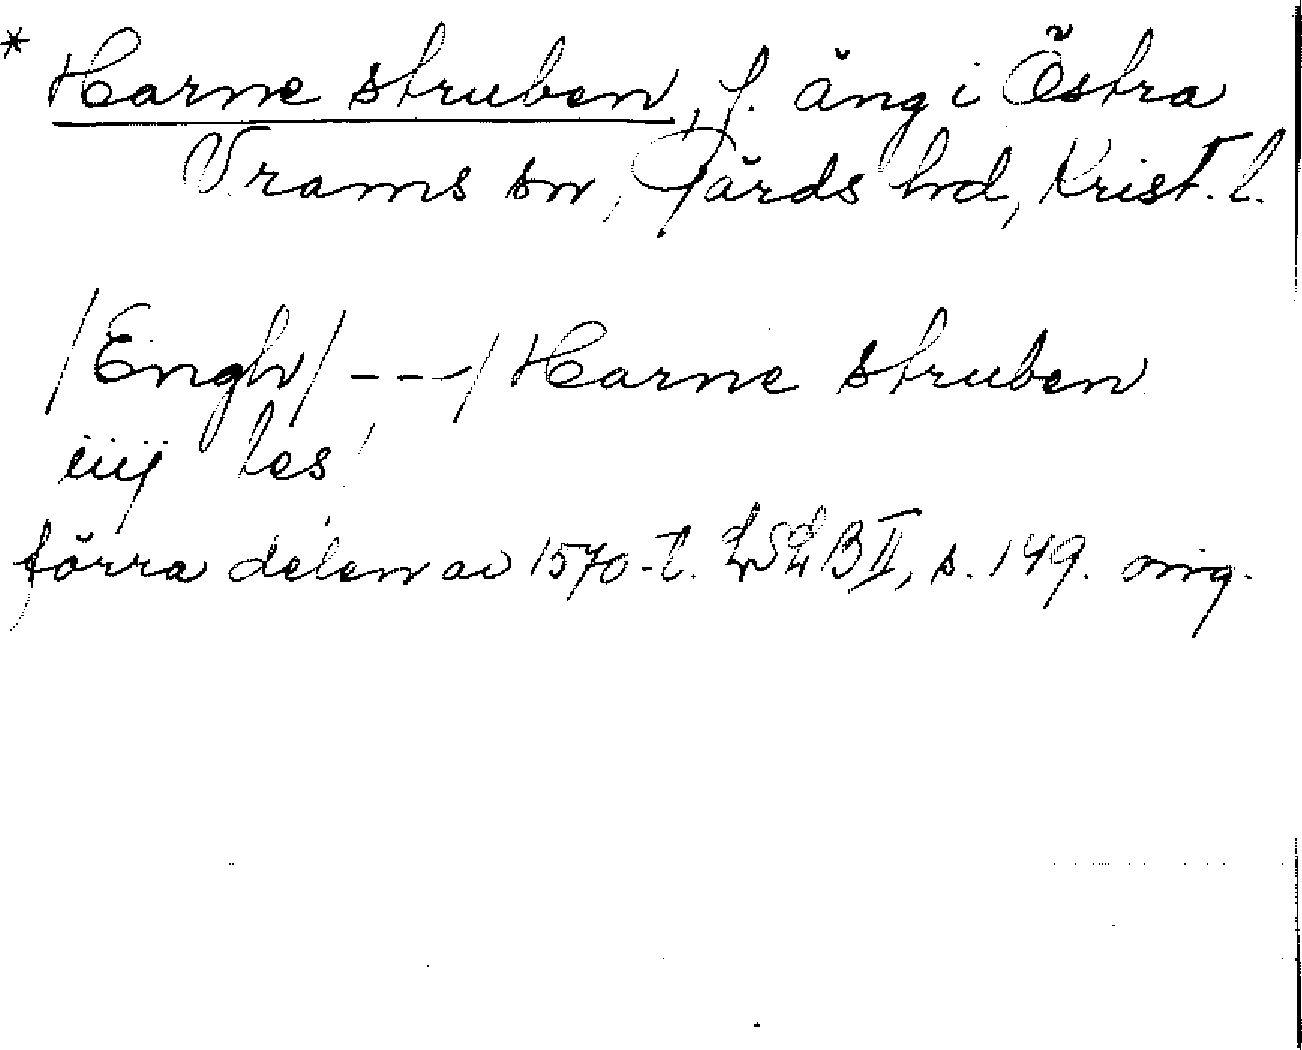 * Harne struben, f. äng i Östra
Vrams sn, Gärds hd, Krist. l.
/Engh/ - - -/ Harne struben
iiij les
förra delen av 1570-t. LSLB II, s. 149. orig.